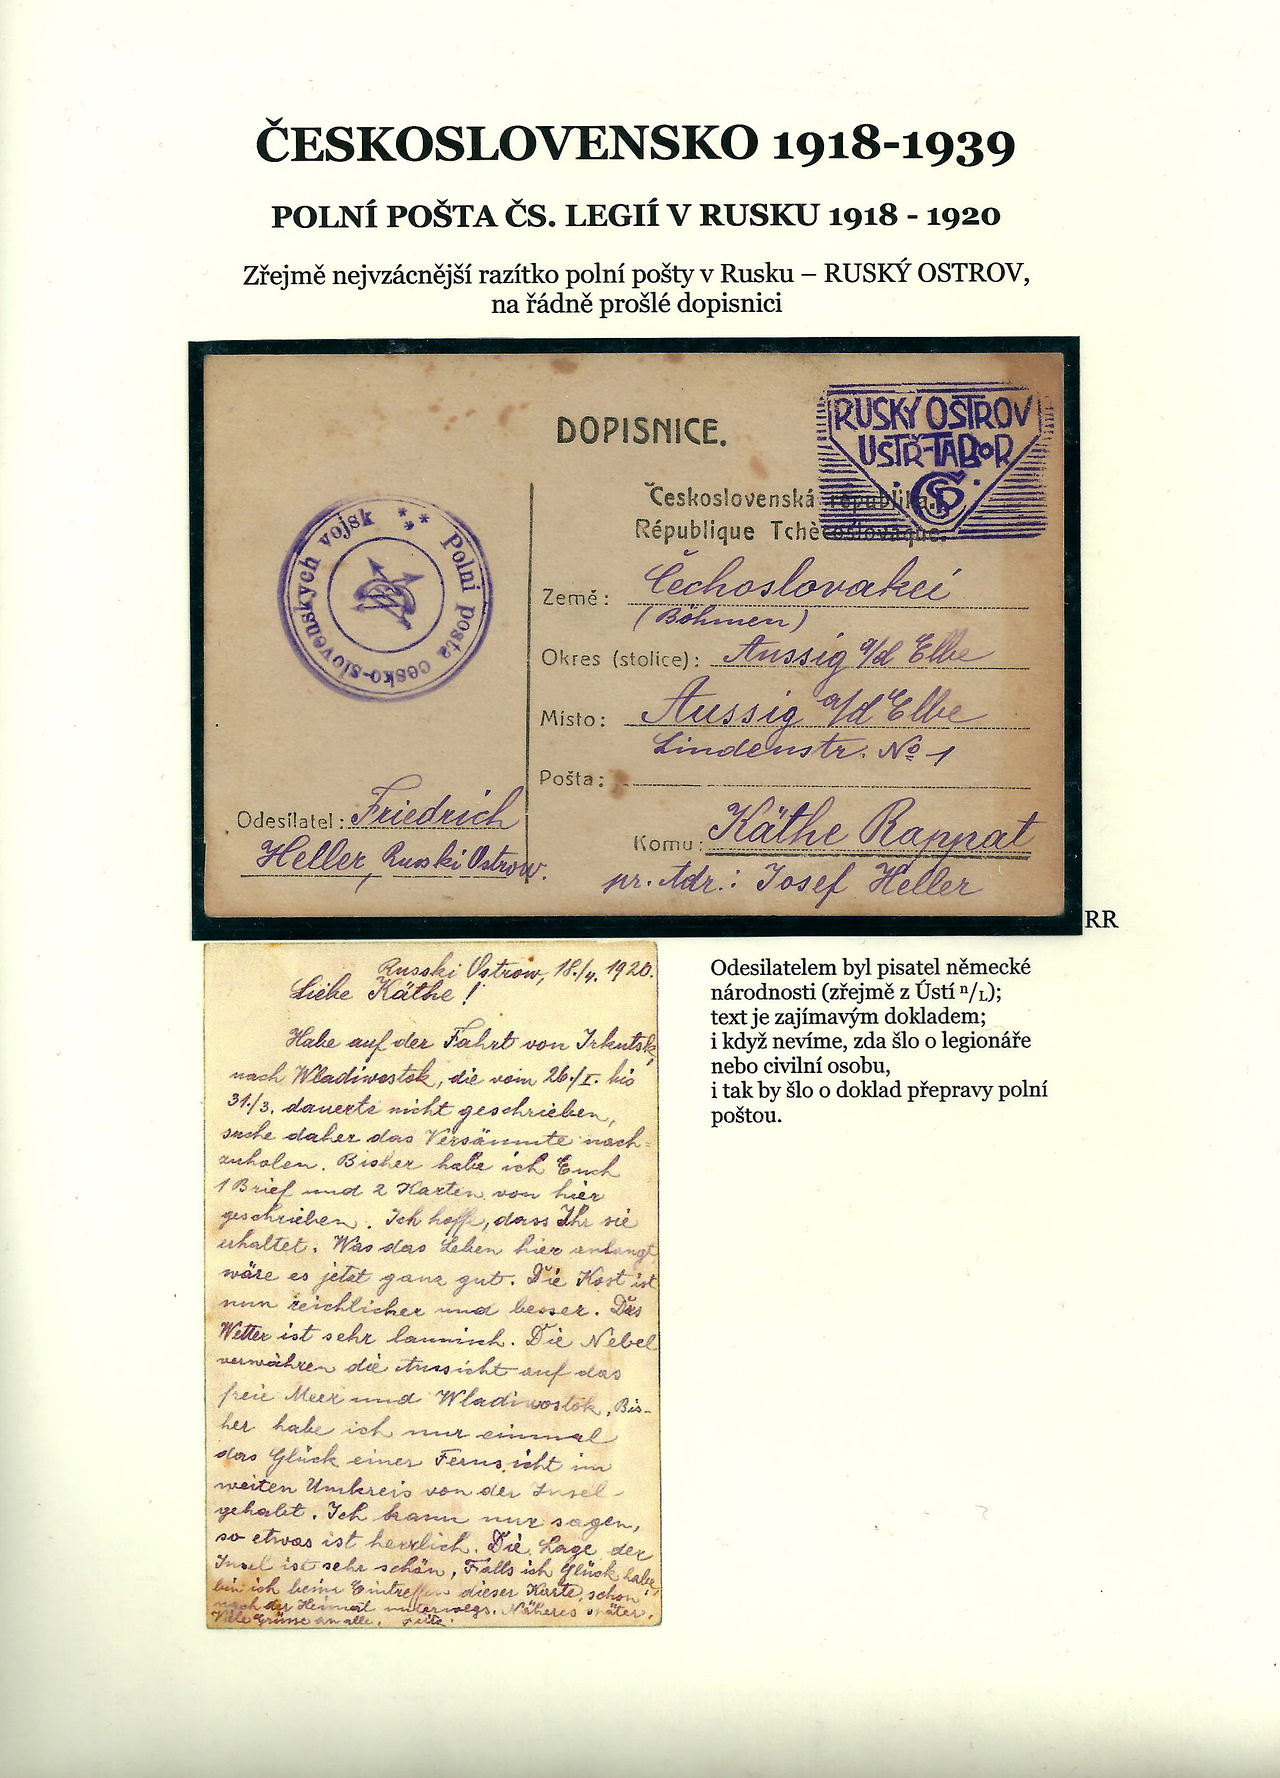 ČESKOSLOVENSKO 1918-1939
POLNÍ POŠTA ČS. LEGIÍ V RUSKU 1918 - 1920
Zřejmě nejvzácnější razítko polní pošty v Rusku – RUSKÝ OSTROV,
na řádně prošlé dopisnici
DOPISNICE.
RUSKÝ OSTROV
USTŘ-TABOR
ČS
Československá republika.
République Tchècoslovaque.
Polní pošta česko-slovenských vojsk
Země: Čechoslovakei
(Böhmen)
Okres (stolice): Aussig a/d Elbe
Místo: Aussig a/d Elbe
Lindenstr. No 1
Pošta:
Odesílatel: Friedrich
Heller, Russki Ostrow.
Komu: Käthe Rappat
pr. Adr.: Josef Heller
RR
Russki Ostrow, 18./4. 1920.
Liebe Käthe!
Habe auf der Fahrt von Irkutsk
nach Wladiwostok, die vom 26./I. bis
31./3. dauerte nicht geschrieben,
suche daher das Versäumte nach-
zuholen. Bisher habe ich Euch
1 Brief und 2 Karten von hier
geschrieben. Ich hoffe, dass Ihr sie
erhaltet. Was das Leben hier anlangt,
wäre es jetzt ganz gut. Die Kost ist
nun reichlicher und besser. Das
Wetter ist sehr launisch. Die Nebel
verwähren die Aussicht auf das
freie Meer und Wladiwostok. Bis-
her habe ich nur einmal
das Glück einer Fernsicht im
weiten Umkreis von der Insel
gehabt. Ich kann nur sagen,
so etwas ist herrlich. Die Lage der
Insel ist sehr schön. Falls ich Glück habe,
bin ich beim Eintreffen dieser Karte schon
nach der Heimat unterwegs. Näheres später.
Viele Grüsse an alle.
Odesilatelem byl pisatel německé
národnosti (zřejmě z Ústí n/L);
text je zajímavým dokladem;
i když nevíme, zda šlo o legionáře
nebo civilní osobu,
i tak by šlo o doklad přepravy polní
poštou.